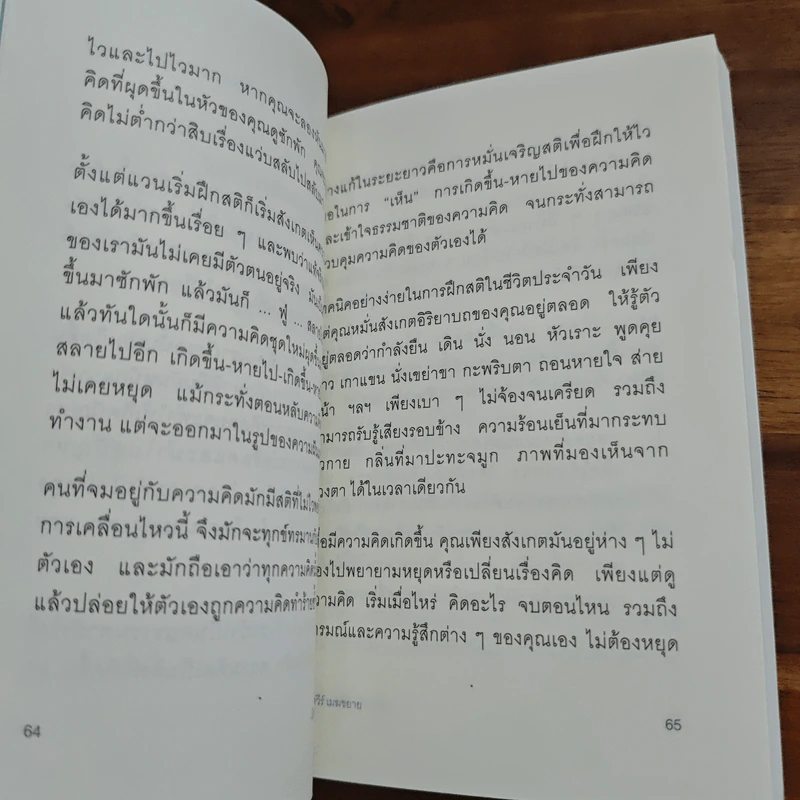 ไวและไปไวมาก หากคุณจะลอง
คิดที่ผุดขึ้นในหัวของคุณดูซักพัก
คิดไม่ต่ำกว่าสิบเรื่องแว่บสลับไปสลับ
ตั้งแต่แวนเริ่มฝึกสติก็เริ่มสังเกต
เองได้มากขึ้นเรื่อย ๆ และพบว่า
ของเรามันไม่เคยมีตัวตนอยู่จริง
ขึ้นมาซักพัก แล้วมันก็ ... ฟู่ ...
แล้วทันใดนั้นก็มีความคิดชุดใหม่ผุดขึ้น
สลายไปอีก เกิดขึ้น-หายไป-เกิดขึ้น-
ไม่เคยหยุด แม้กระทั่งตอนหลับ
ทำงาน แต่จะออกมาในรูปของความ
คนที่จมอยู่กับความคิดมักมีสติที่ไม่
การเคลื่อนไหวนี้ จึงมักจะทุกข์ทรมาน
ตัวเอง และมักถือเอาว่าทุกความคิด
แล้วปล่อยให้ตัวเองถูกความคิดทำร้าย
64
างแก้ในระยะยาวคือการหมั่นเจริญสติเพื่อฝึกให้ไว
อในการ "เห็น" การเกิดขึ้น-หายไปของความคิด
ละเข้าใจธรรมชาติของความคิด จนกระทั่งสามารถ
วบคุมความคิดของตัวเองได้
ทคนิคอย่างง่ายในการฝึกสติในชีวิตประจำวัน เพียง
ต่คุณหมั่นสังเกตอิริยาบถของคุณอยู่ตลอด ให้รู้ตัว
ยู่ตลอดว่ากำลังยืน เดิน นั่ง นอน หัวเราะ พูดคุย
าว เกาแขน นั่งเขย่าขา กะพริบตา ถอนหายใจ ส่าย
น้า ฯลฯ เพียงเบา ๆ ไม่จ้องจนเครียด รวมถึง
ามารถรับรู้เสียงรอบข้าง ความร้อนเย็นที่มากระทบ
วกาย กลิ่นที่มาปะทะจมูก ภาพที่มองเห็นจาก
วงตา ได้ในเวลาเดียวกัน
อมีความคิดเกิดขึ้น คุณเพียงสังเกตมันอยู่ห่าง ๆ ไม่
องไปพยายามหยุดหรือเปลี่ยนเรื่องคิด เพียงแต่ดู
วามคิด เริ่มเมื่อไหร่ คิดอะไร จบตอนไหน รวมถึง
ารมณ์และความรู้สึกต่าง ๆ ของคุณเอง ไม่ต้องหยุด
เมฆขยาย
65